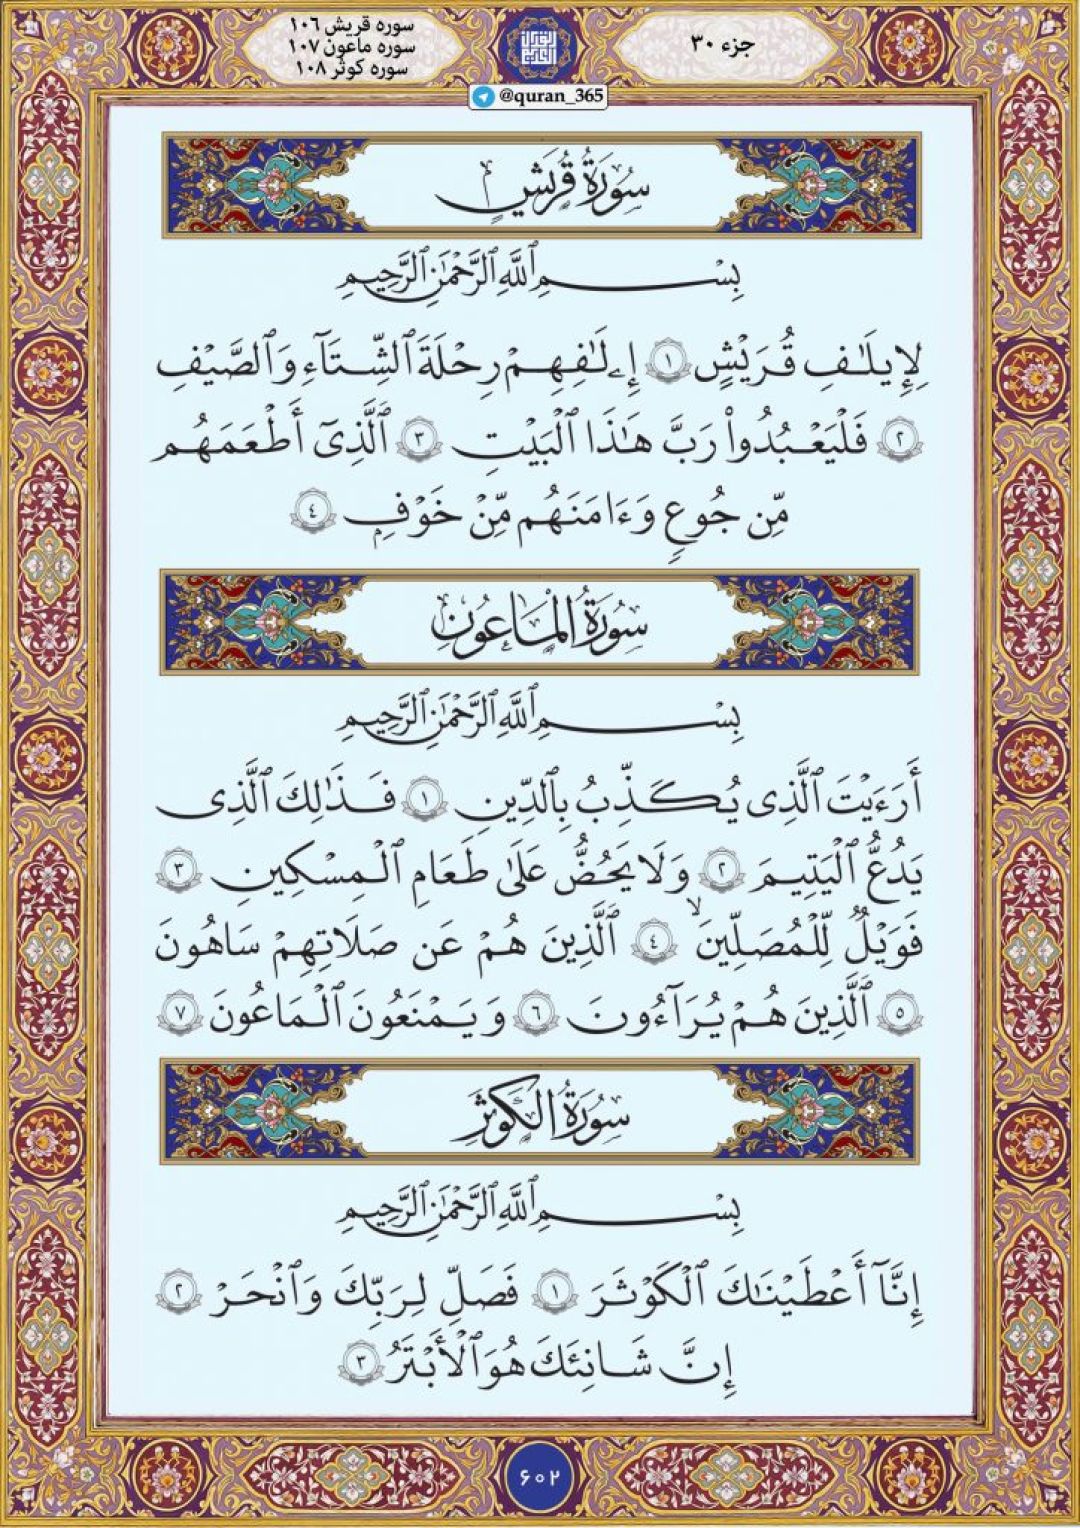 سوره قریش ۱۰۶
سوره ماعون ۱۰۷
سوره کوثر ۱۰۸
جزء ۳۰
@quran_365
سُورَةُ قُرَيْشٍ
بِسْمِ ٱللَّهِ ٱلرَّحْمَٰنِ ٱلرَّحِيمِ
لِإِيلَـٰفِ قُرَيْشٍ ١ إِۦلَـٰفِهِمْ رِحْلَةَ ٱلشِّتَآءِ وَٱلصَّيْفِ
٢ فَلْيَعْبُدُوا۟ رَبَّ هَـٰذَا ٱلْبَيْتِ ٣ ٱلَّذِىٓ أَطْعَمَهُم
مِّن جُوعٍ وَءَامَنَهُم مِّنْ خَوْفٍ ٤
سُورَةُ الْمَاعُونِ
بِسْمِ ٱللَّهِ ٱلرَّحْمَٰنِ ٱلرَّحِيمِ
أَرَءَيْتَ ٱلَّذِى يُكَذِّبُ بِٱلدِّينِ ١ فَذَٰلِكَ ٱلَّذِى
يَدُعُّ ٱلْيَتِيمَ ٢ وَلَا يَحُضُّ عَلَىٰ طَعَامِ ٱلْمِسْكِينِ ٣
فَوَيْلٌ لِّلْمُصَلِّينَ ۙ ٤ ٱلَّذِينَ هُمْ عَن صَلَاتِهِمْ سَاهُونَ
٥ ٱلَّذِينَ هُمْ يُرَآءُونَ ٦ وَيَمْنَعُونَ ٱلْمَاعُونَ ٧
سُورَةُ الْكَوْثَرِ
بِسْمِ ٱللَّهِ ٱلرَّحْمَٰنِ ٱلرَّحِيمِ
إِنَّآ أَعْطَيْنَاكَ ٱلْكَوْثَرَ ١ فَصَلِّ لِرَبِّكَ وَٱنْحَرْ ٢
إِنَّ شَانِئَكَ هُوَ ٱلْأَبْتَرُ ٣
۶۰۲